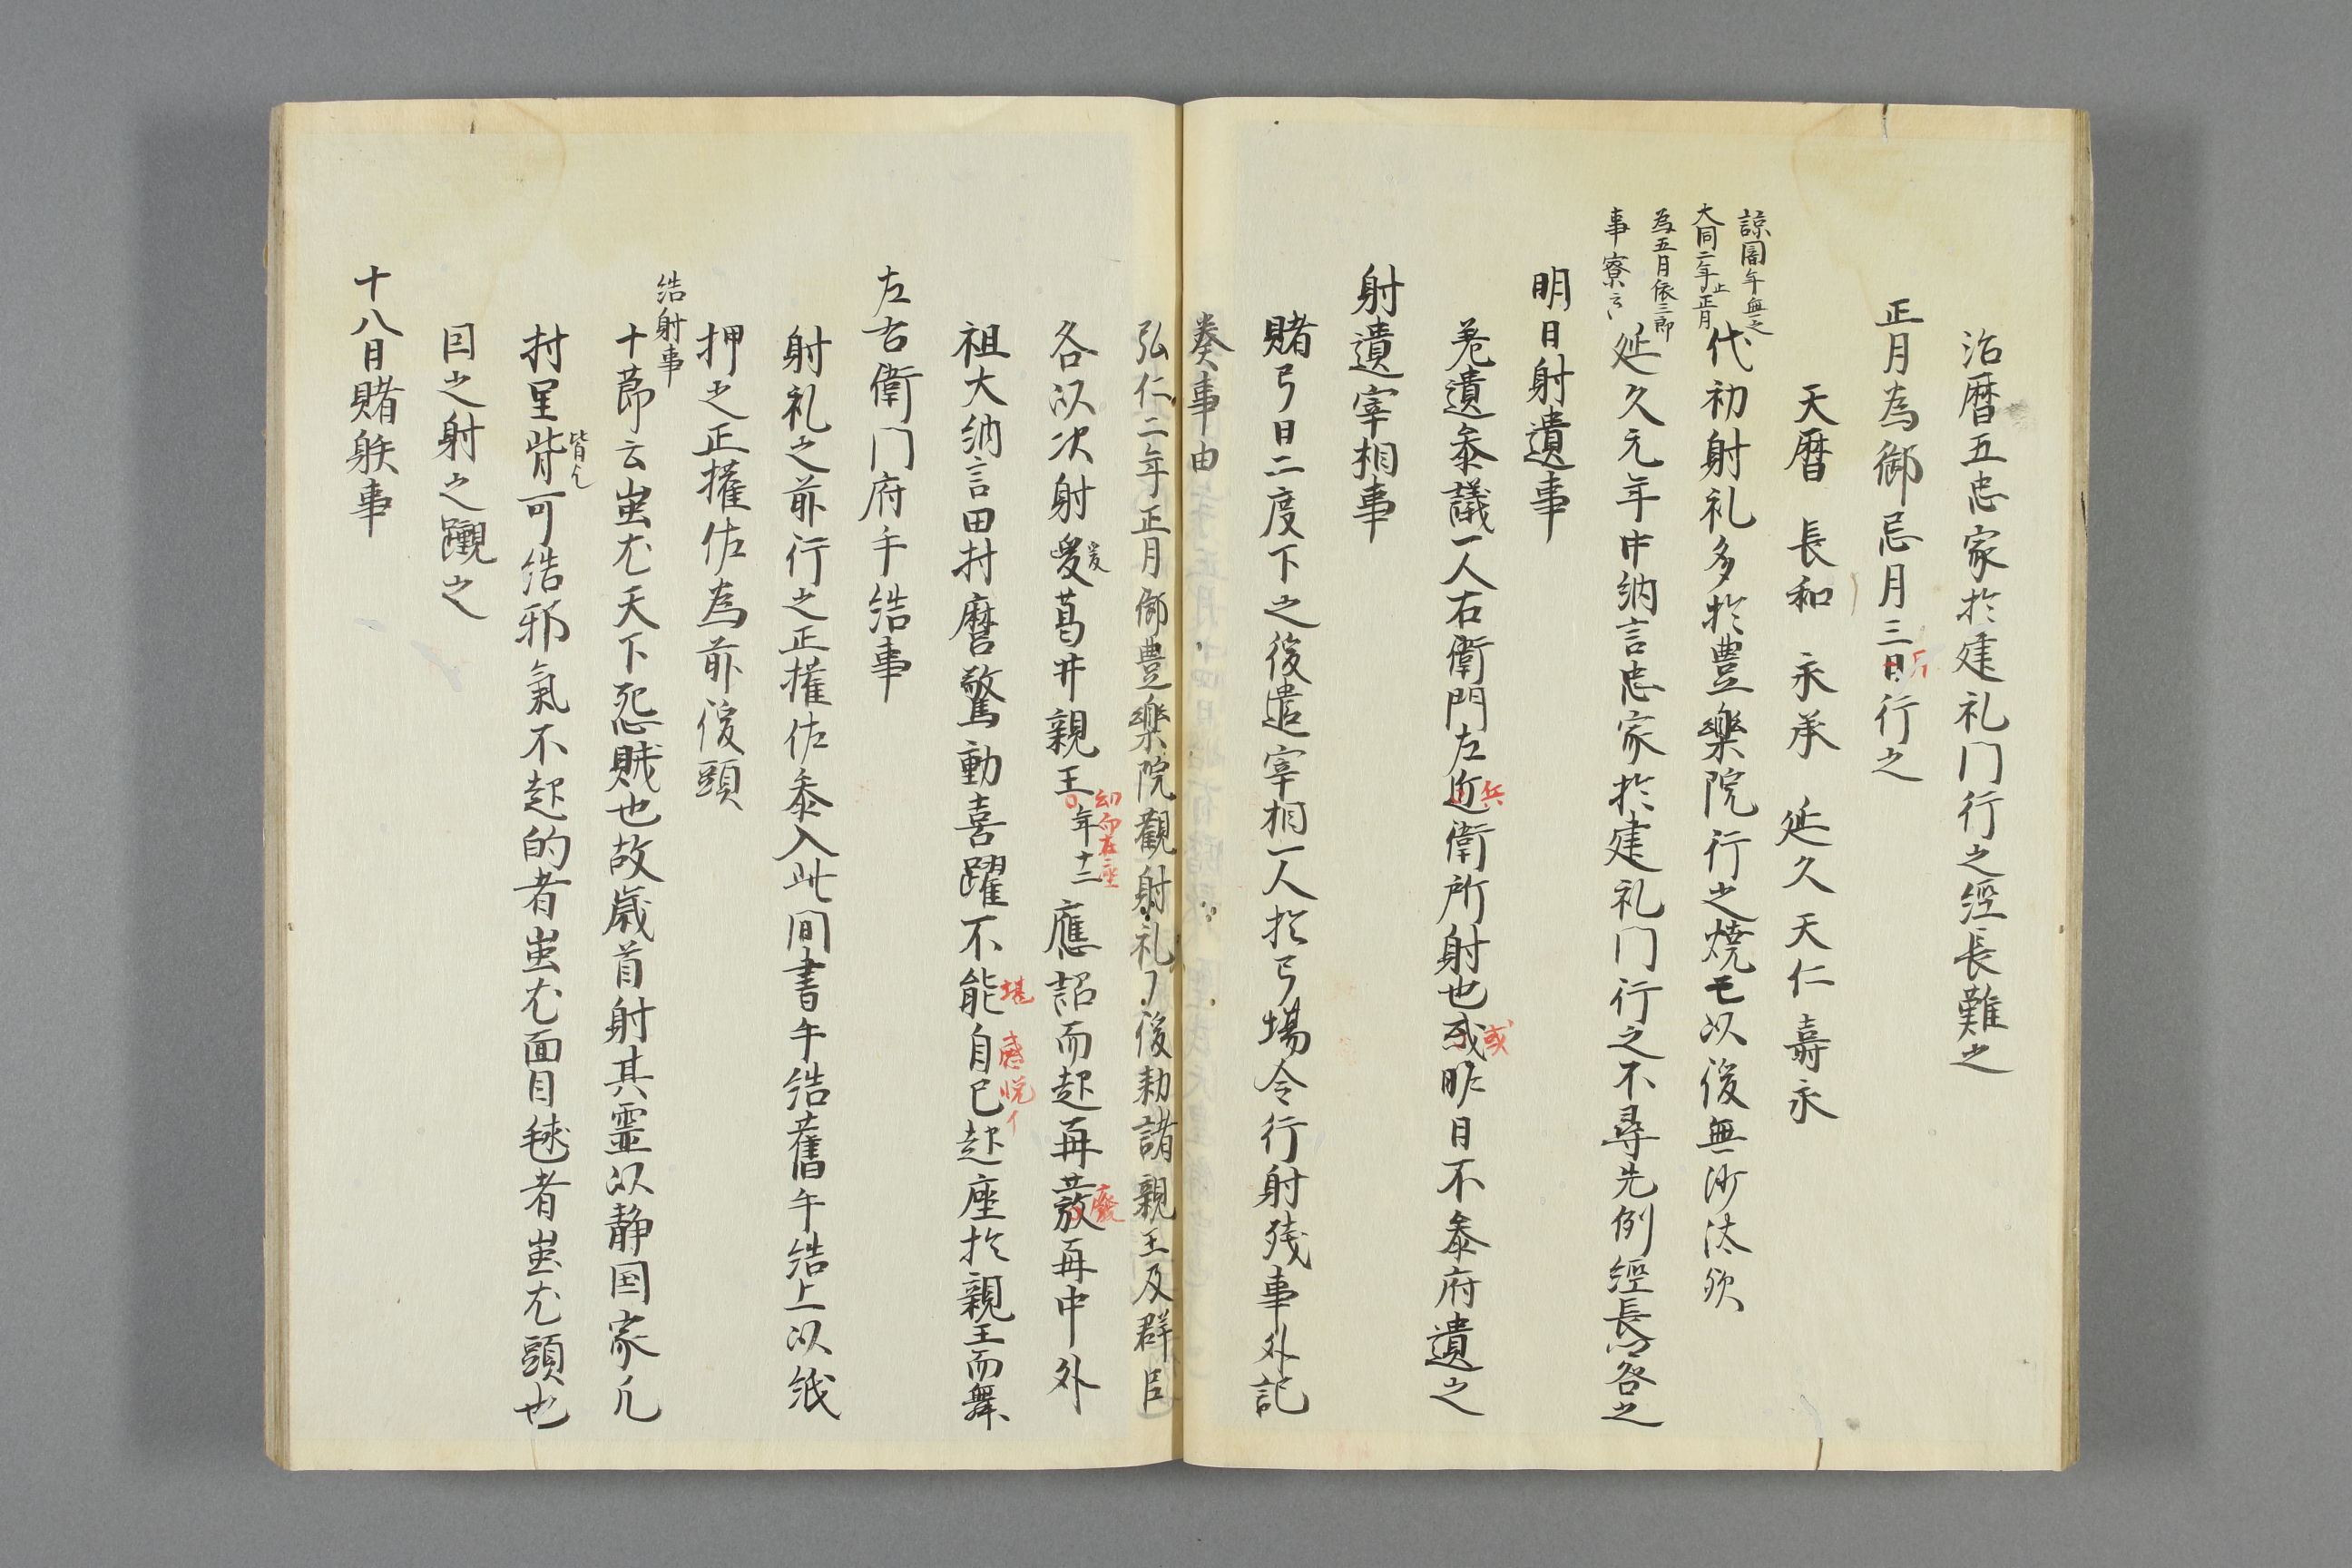 治暦五忠家於建礼门行之經長難之
正月為御忌月三日行之
天暦 長和 永承 延久天仁嘉永
諒闇年無之
大同二年止正月
為五月依三節
事寮云〻
代初射礼多於豊樂院行之焼亡以後無沙汰欤
延久元年中納言忠家於建礼门行之不尋先例經長卿咎之
明日射遺事
差遺参議一人右衛門左近衛所射也或昨日不参府遺之
兵
或
射遺宰相事
賭弓日二度下之後遣宰相一人於弓場令行射残事外記
奏事由
弘仁二年正月御豊樂院觀射礼了後勅諸親王及群臣
各以次射爰葛井親王年十二應詔而起再發再中外
幼而在座
廢
祖大納言田村麿驚動喜躍不能自已起座於親王而舞
堪
感悦イ
左右衛门府手結事
射礼之前行之正權佐参入此间書手結舊手結上以紙
押之正權佐為前後頭
結射事
十莭云蚩尤天下怨賊也故歳首射其靈以静国家凡
村里皆可結邪氣不起的者蚩尤面目毬者蚩尤頭也
因之射之蹴之
十八日賭射事